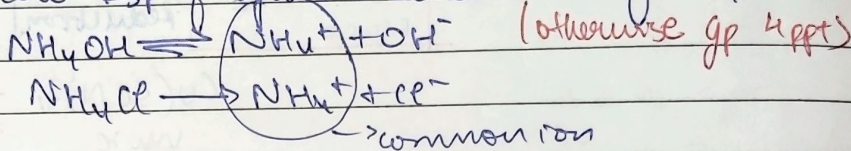 NH4OH ⇌ NH4+ + OH- (otherwise gp 4 ppt)
NH4Cl → NH4+ + Cl-
→ common ion